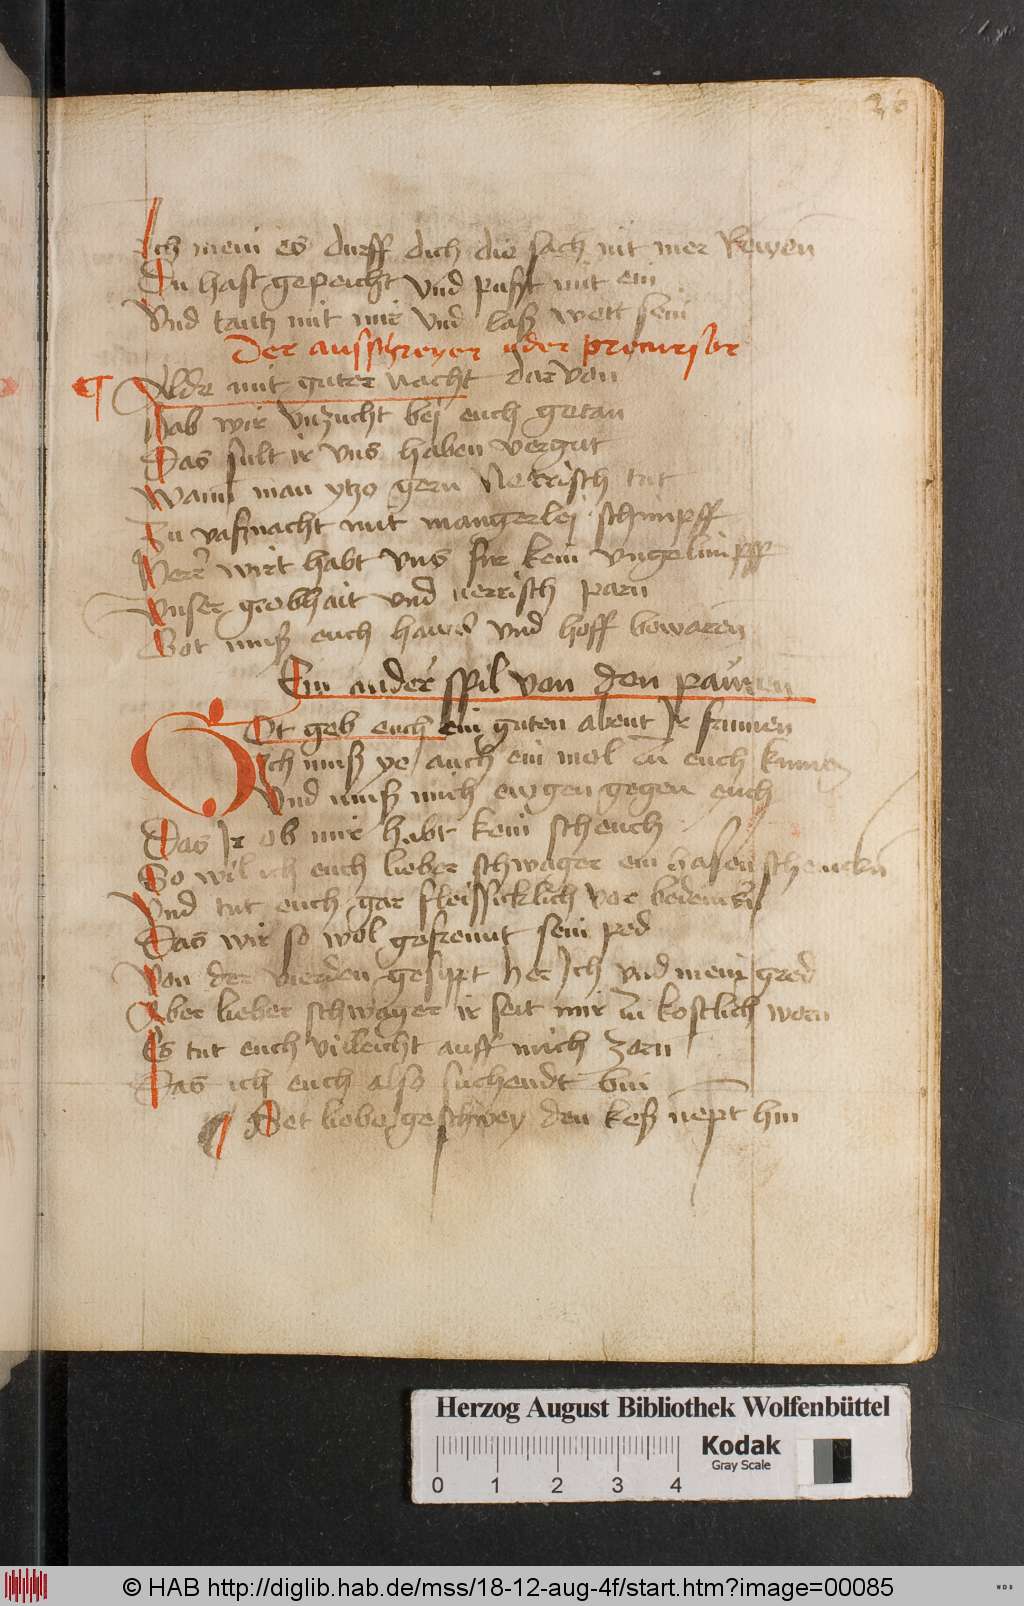 36
Ich mein es durff dich die sach nit mer Rewen
Du hast gepeicht vnd pußt mit ein
Vnd tantz mit mir vnd laß wett sein
Der ausschreyer oder precursor
Alde mit guter nacht dar von
Hab wir vnzucht bej euch getan
Das sult ir vns haben vergut
Wann man ytzo gern Nerrisch tut
Zu vaßnacht mit mangerlej schimpff
Herr wirt habt vns fur kein vngelimpff
Vnser grobhait vnd nerrisch parn
Got muß euch hawß vnd hoff bewaren
Ein ander spil von den pauren
Got geb euch ein guten abent Ir frumen
Ich muß ye auch ein mol zu euch kumen
Vnd muß mich eygen gegen euch
Das Ir ob mir habt kein scheuch
So wil ich euch lieber schwager ein hasen schencken
Vnd tut euch gar fleissicklich vor bedencken
Das wir so wol gefreunt sein ped
Von der vierden gesipt her Ich vnd mein gred
Aber lieber schwager ir seit mir zu kostlich worn
Es tut euch villeicht auff mich zorn
Das ich euch also suchendt bin
Set liebe geschwey den keß nempt hin
Herzog August Bibliothek Wolfenbüttel
Kodak
Gray Scale
0 1 2 3 4
© HAB http://diglib.hab.de/mss/18-12-aug-4f/start.htm?image=00085